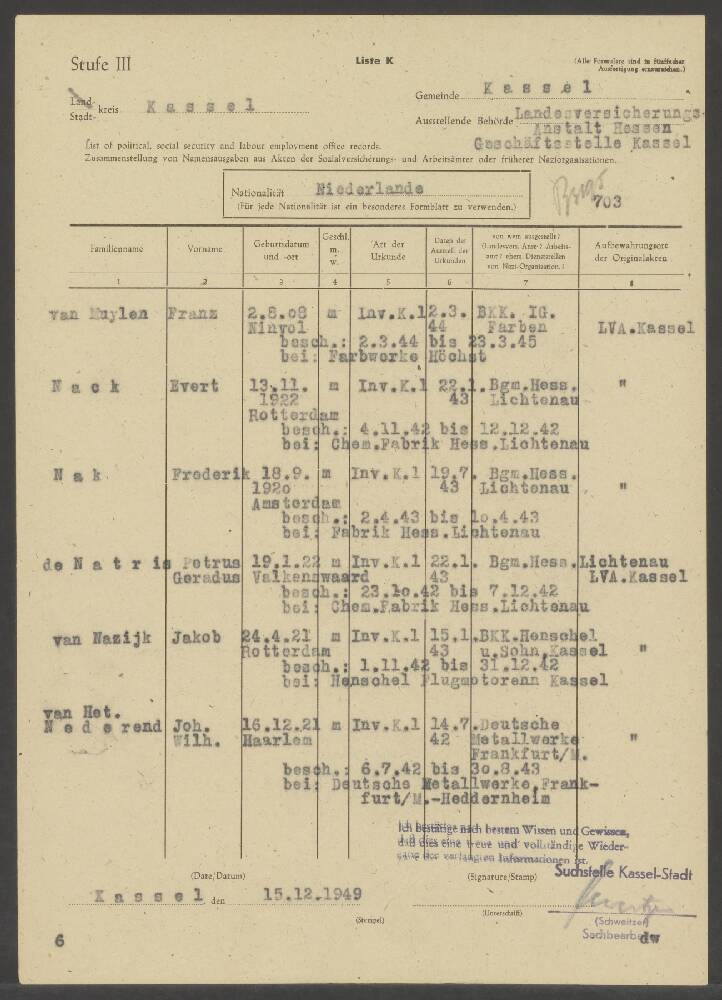 Stufe III
Liste K
(Alle Formulare sind in
Ausfertigung
Land-
Stadt- kreis K a s s e l
Gemeinde K a s s e l
Ausstellende Behörde Landesversicherungs-
Anstalt Hessen
Geschäftsstelle Kassel
List of political, social security and labour employment office records.
Zusammenstellung von Namensausgaben aus Akten der Sozialversicherungs- und Arbeitsämter oder früherer Naziorganisationen.
Nationalität Niederlande
(Für jede Nationalität ist ein besonderes Formblatt zu verwenden.)
703
Familienname
Vorname
Geburtsdatum und -ort
Geschl. m. w.
Art der Urkunde
Datum der Ausstell. der Urkunden
von wem ausgestellt? (Landesvers. Anst.? Arbeitsamt? ehem. Dienststellen von Nazi-Organisation.?
Aufbewahrungsort der Originalakten
1 2 3 4 5 6 7 8
van Muylen Franz 2.8.08 m Inv.K.1 2.3. BKK. IG.
Ninvol 44 Farben LVA.Kassel
besch.: 2.3.44 bis 23.3.45
bei: Farbwerke Höchst
N a c k Evert 13.11. m Inv.K.1 22.1. Bgm.Hess. "
1922 43 Lichtenau
Rotterdam
besch.: 4.11.42 bis 12.12.42
bei: Chem.Fabrik Hess.Lichtenau
N a k Frederik 18.9. m Inv.K.1 19.7. Bgm.Hess.
1920 43 Lichtenau "
Amsterdam
besch.: 2.4.43 bis 10.4.43
bei: Fabrik Hess.Lichtenau
de N a t r i s Petrus 19.1.22 m Inv.K.1 22.1. Bgm.Hess.Lichtenau
Geradus Valkenswaard 43 LVA.Kassel
besch.: 23.10.42 bis 7.12.42
bei: Chem.Fabrik Hess.Lichtenau
van Nazijk Jakob 24.4.21 m Inv.K.1 15.1. BKK.Henschel
Rotterdam 43 u.Sohn,Kassel "
besch.: 1.11.42 bis 31.12.42
bei: Henschel Flugmotorenn Kassel
van Het.
N e d e rend Joh. 16.12.21 m Inv.K.1 14.7. Deutsche
Wilh. Haarlem 42 Metallwerke "
Frankfurt/M.
besch.: 6.7.42 bis 30.8.43
bei: Deutsche Metallwerke,Frank-
furt/M.-Heddernheim
Ich bestätige nach bestem Wissen und Gewissen,
daß dies eine treue und vollständige Wieder-
gabe der verlangten Informationen ist.
(Date/Datum)
(Signature/Stamp) Suchstelle Kassel-Stadt
K a s s e l den 15.12.1949
(Stempel)
(Unterschrift)
(Schweitzer)
Sachbearb
dw
6